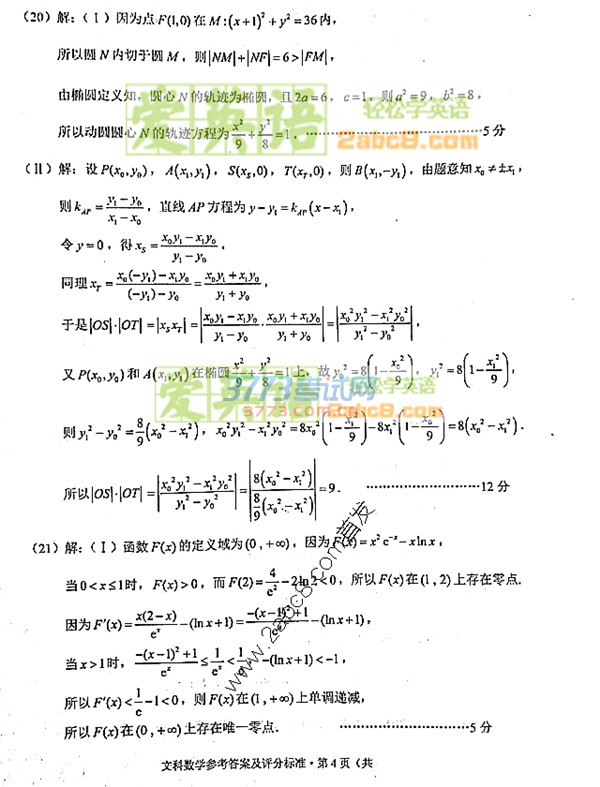 (20) 解：(Ⅰ) 因为点 F(1,0) 在 M:(x+1)²+y²=36 内，
所以圆 N 内切于圆 M，则|NM|+|NF|=6>|FM|，
由椭圆定义知，圆心 N 的轨迹为椭圆，且 2a=6，c=1，则 a²=9，b²=8，
所以动圆圆心 N 的轨迹方程为 x²/9+y²/8=1. ……………………………5 分
(Ⅱ) 解：设 P(x₀,y₀)，A(x₁,y₁)，S(xₛ,0)，T(x_T,0)，则 B(x₁,-y₁)，由题意知 x₀≠±x₁，
则 k_AP=(y₁-y₀)/(x₁-x₀)，直线 AP 方程为 y-y₁=k_AP(x-x₁)，
令 y=0，得 x_S=(x₀y₁-x₁y₀)/(y₁-y₀)，
同理 x_T=(x₀(-y₁)-x₁y₀)/((-y₁)-y₀)=(x₀y₁+x₁y₀)/(y₁+y₀)，
于是|OS|·|OT|=|x_S x_T|=|(x₀y₁-x₁y₀)/(y₁-y₀)·(x₀y₁+x₁y₀)/(y₁+y₀)|=|(x₀²y₁²-x₁²y₀²)/(y₁²-y₀²)|，
又 P(x₀,y₀) 和 A(x₁,y₁) 在椭圆 x²/9+y²/8=1 上，故 y₀²=8(1-x₀²/9)，y₁²=8(1-x₁²/9)，
则 y₁²-y₀²=8/9(x₀²-x₁²)，x₀²y₁²-x₁²y₀²=8x₀²(1-x₁²/9)-8x₁²(1-x₀²/9)=8(x₀²-x₁²).
所以|OS|·|OT|=|(x₀²y₁²-x₁²y₀²)/(y₁²-y₀²)|=|8(x₀²-x₁²)/(8/9(x₀²-x₁²))|=9. ……………………12 分
(21) 解：(Ⅰ) 函数 F(x) 的定义域为 (0,+∞)，因为 F(x)=x²e⁻ˣ-x ln x，
当 0<x≤1 时，F(x)>0，而 F(2)=4/e²-2ln2<0，所以 F(x) 在 (1,2) 上存在零点.
因为 F'(x)=x(2-x)/eˣ-(ln x+1)=(-(x-1)²+1)/eˣ-(ln x+1)，
当 x>1 时，(-(x-1)²+1)/eˣ≤1/eˣ<1/e，-(ln x+1)<-1，
所以 F'(x)<1/e-1<0，则 F(x) 在 (1,+∞) 上单调递减，
所以 F(x) 在 (0,+∞) 上存在唯一零点. ……………………………5 分
文科数学参考答案及评分标准·第 4 页（共
爱英语
轻松学英语
2abc8.com
3773考试网
3773.com
爱英语
轻松学英语
2abc8.com
www.2abc8.com首发